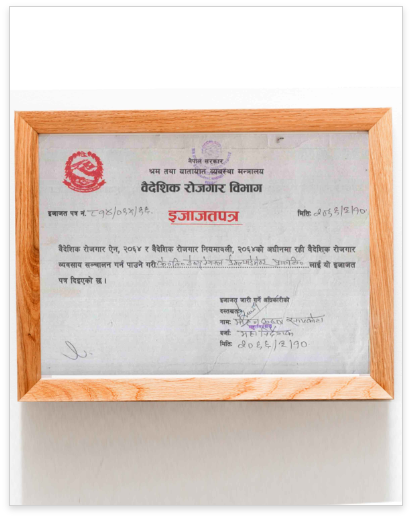 नेपाल सरकार
श्रम तथा यातायात व्यवस्था मन्त्रालय
वैदेशिक रोजगार विभाग
इजाजत पत्र नं. ८१४/०६५/६६ मितिः २०६६/२/१०
इजाजतपत्र
वैदेशिक रोजगार ऐन, २०६४ र वैदेशिक रोजगार नियमावली, २०६४को अधीनमा रही वैदेशिक रोजगार
व्यवसाय सन्चालन गर्न पाउने गरी लाई यो इजाजत
पत्र दिइएको छ ।
इजाजत जारी गर्ने अधिकारीको
दस्तखतः
नामः
दर्जाः महानिर्देशक
मितिः २०६६/२/१०